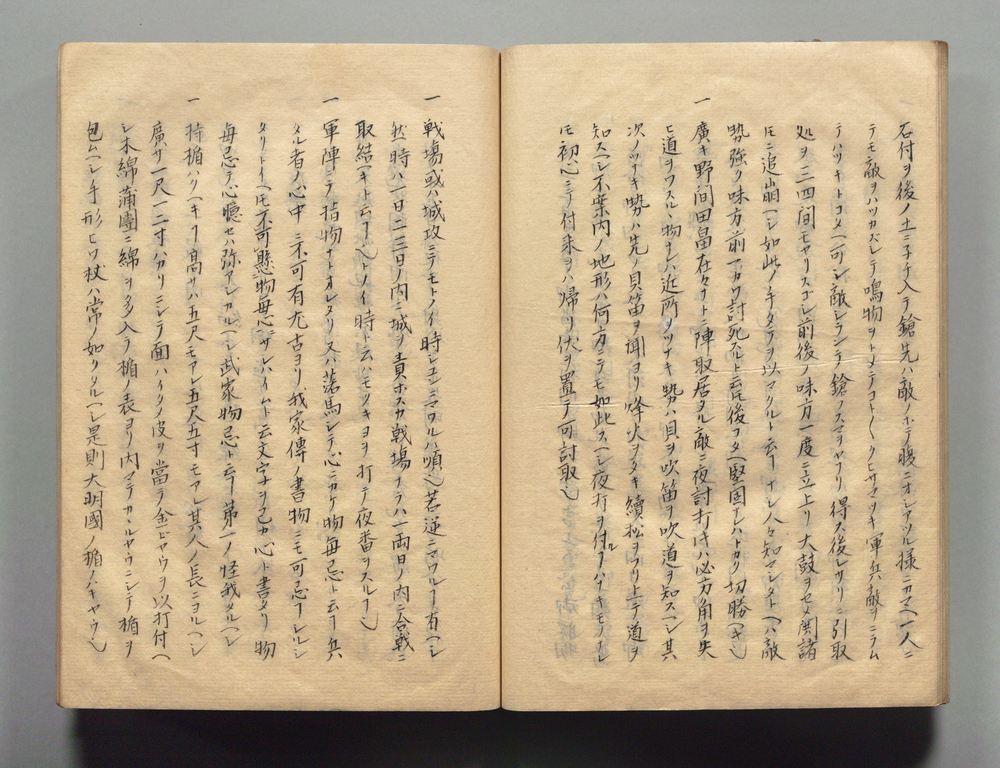 石付ヲ後ノ土ニ子チ入テ鎗先ハ敵ノホテ腹ニオシアツル様ニカマヘ一人ニ
テモ敵ヲハツカズシテ鳴物ヲトメテコト〱クヒサマツキ軍兵敵ヲニラム
テハツキトコメヘ可シ敵シランテ鎗ノスマヲヤフリ得ス後シサリニ引取
処ヲ三四間モヤリスゴシ前後ノ味方一度ニ立上リ大鼓ヲセメ関諸
モニ追崩ヘシ如此ノ手タテヲ以マクルト云ヿナシ人々知マシタトヘハ敵
勢強ク味方前一カワ討死スト云𪜈後ヲタヘ堅固ナレハトカク切勝ヘキ也
一廣キ野間田畠在々ヲトニ陣取居タル敵ニ夜討打片ハ必方角ヲ失
ヒ道ヲワスルヽ物ナレハ近所ノツヽキ勢ハ貝ヲ吹笛ヲ吹道ヲ知スヘシ其
次ノツヽキ勢ハ先ノ貝笛ヲ聞ヨリ烽火ヲタキ續松ヲフリ上テ道ヲ
知スヘシ不案内ノ地形ハ何方ニテモ如此スヘシ夜打ヲ付ルヿハキモノナレ
𪜈初心ニテ付来ラハ帰リ伏ヲ置テ可討取也
一戦場或ハ城攻ニテモトノイ時シユンニマワルハ順也若逆ニマワルヿ有ヘシ
然時ハ一日二三日ノ内ニ城ヲ責ホスカ戦場ナラハ一両日ノ内ニ合戦ニ
取結ヘキト云ヿ也トノイ時ト云ハモツキヨヲ打テ夜番ヲスルヿ也
一軍陣ニテ指物ナトオレタリ又ハ落馬シテ心ニカケ物毎忌ト云ヿ兵
タル者ノ心中ニ不可有尤古ヨリ我家傳ノ書物ニモ可忌ヿシルシ
タリトイヘ𪜈不可懸物毎心ニサレハイムト云文字ヲ己カ心ト書タリ物
毎忌テ心臆セハ弥アシカルヘシ武家物忌ト云ヿ第一ノ怪我タルヘシ
一持楯ハリヘキヿ高サハ五尺モアレ五尺五寸モアレ其人ノ長ニヨルヘシ
廣サ一尺一二寸ハカリニシテ面ハイタメ皮ヲ當テ金ビヤウヲ以打付ヘ
シ木綿蒲團ニ綿ヲ多入テ楯ノ表ヨリ内マテカヽルヤウニシテ楯ヲ
包ムヘシ手形ヒツ杖ハ常ノ如クタルヘシ是則大明國ノ楯ノハキヤウ也